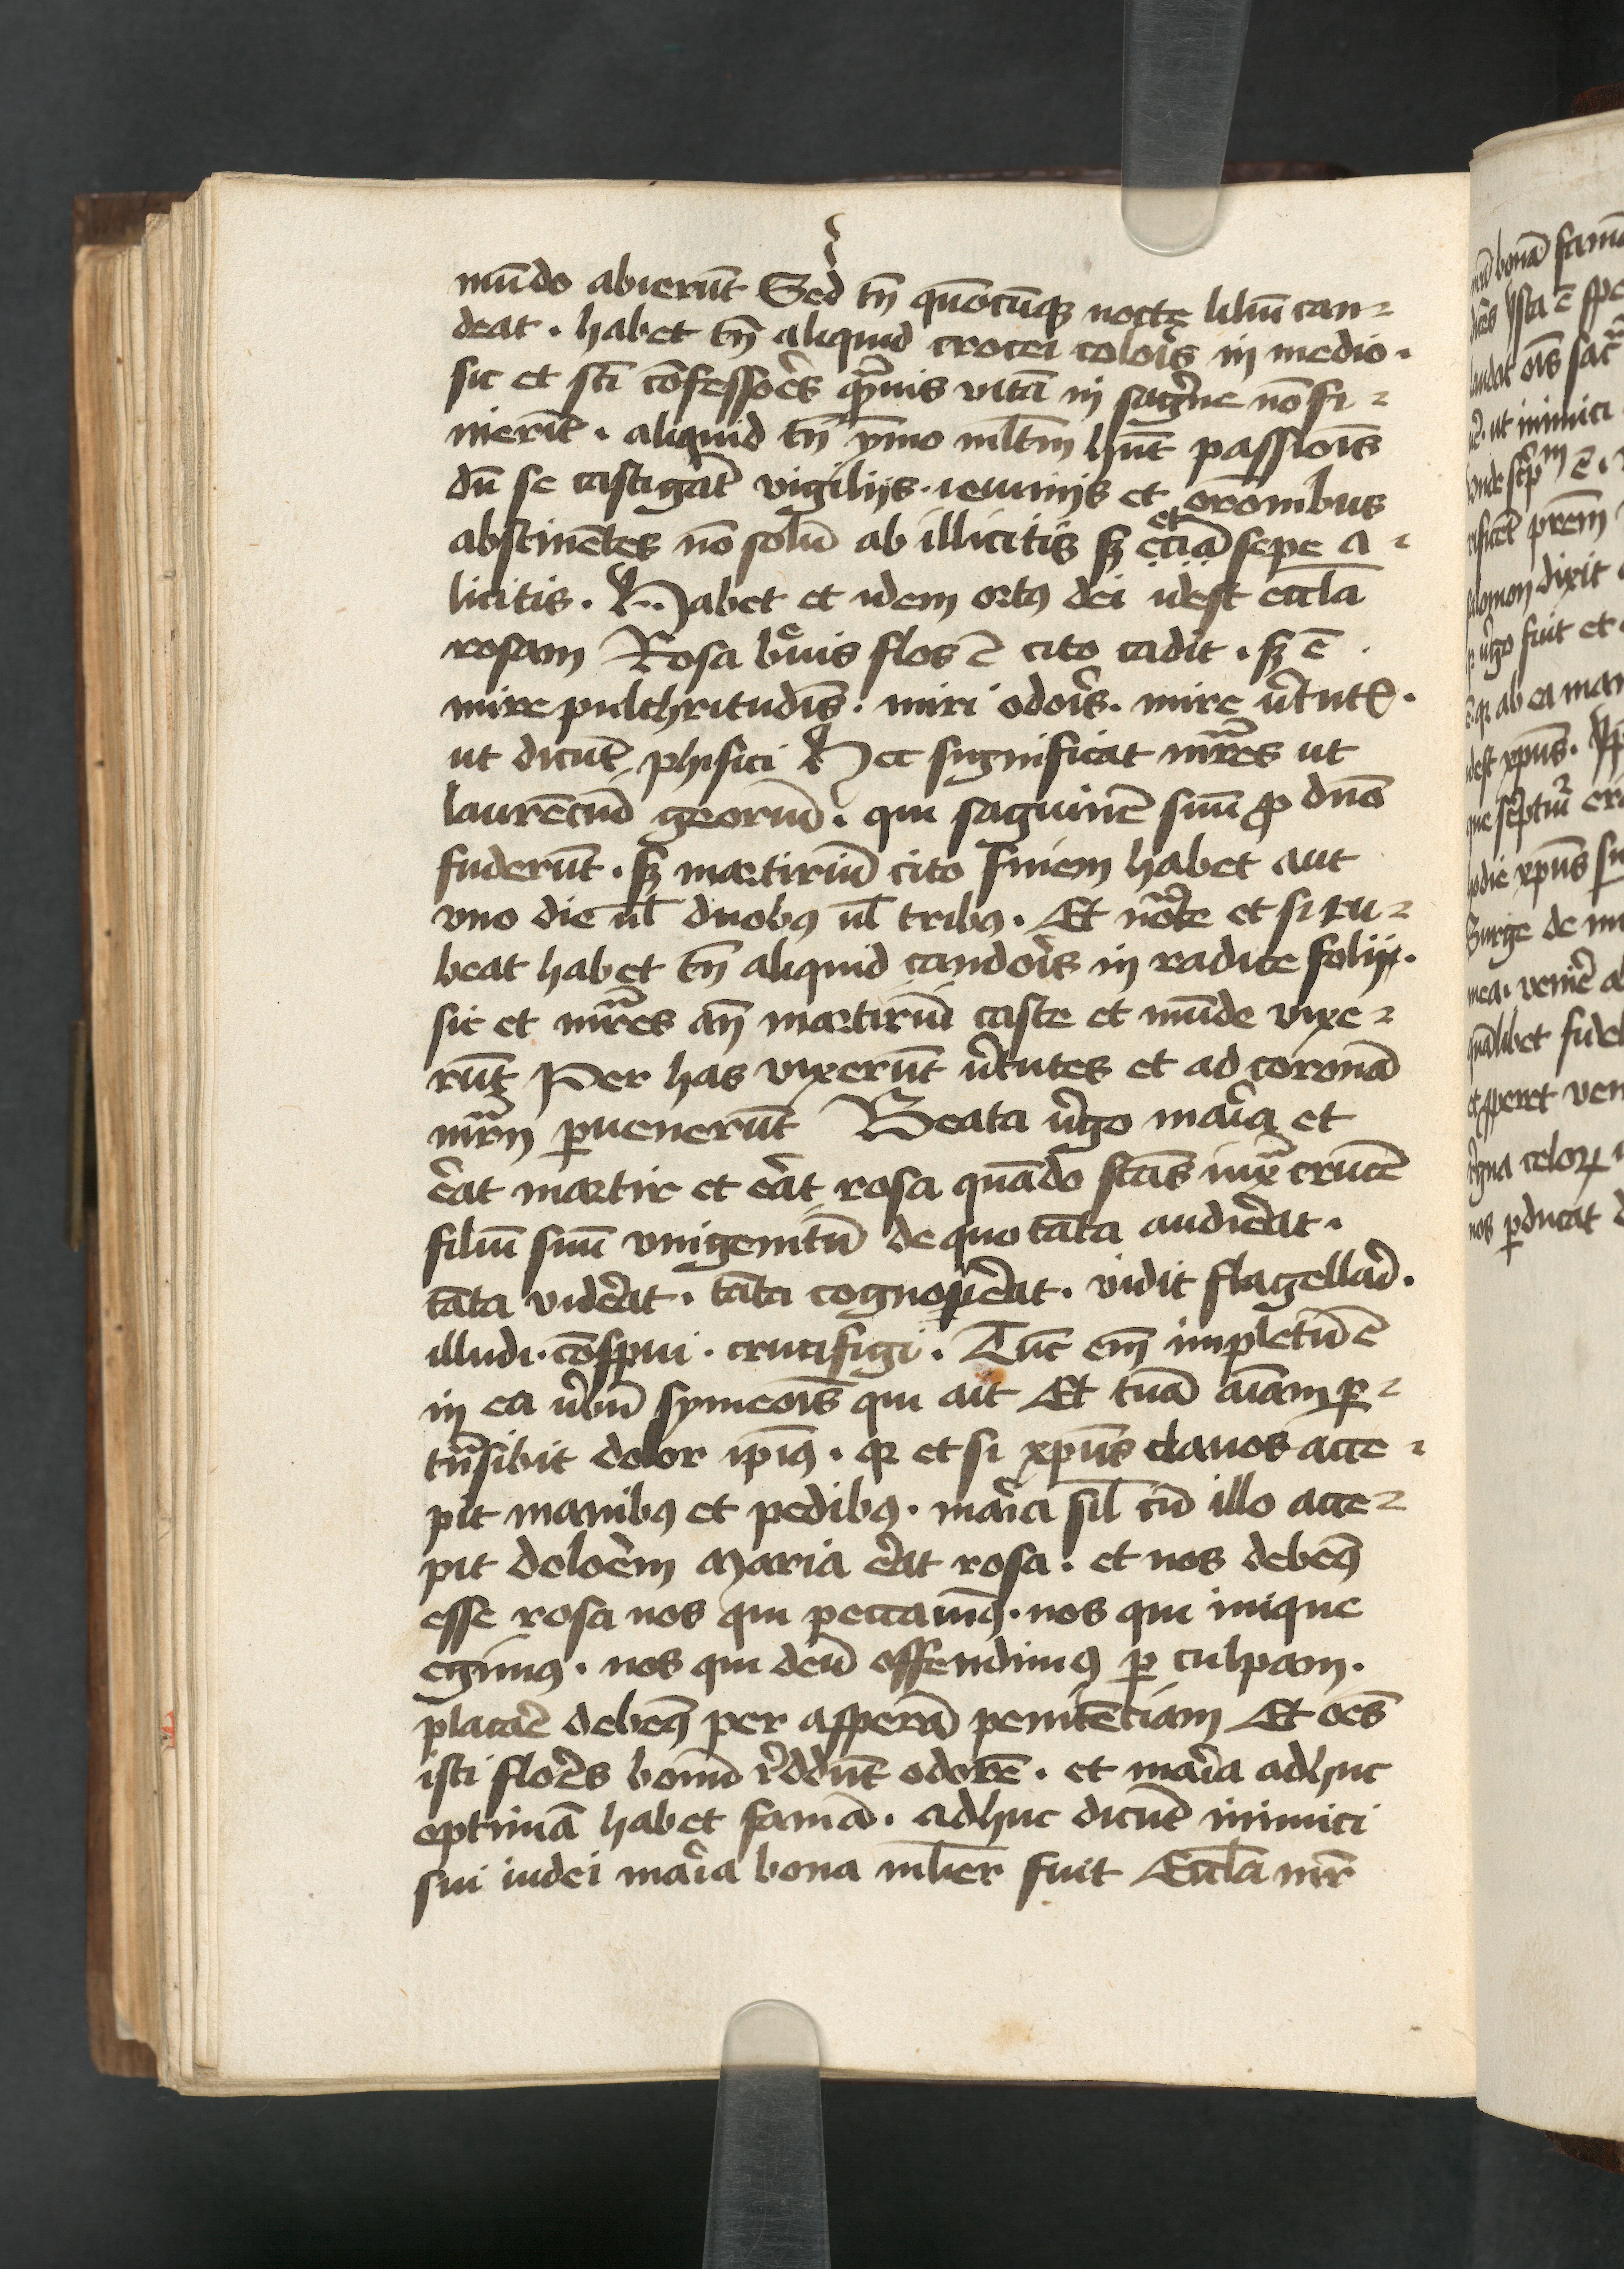 mūdo abierūt Sed tn̄ quōcūqꝫ nocte liliū can⸗
deat · habet tn̄ aliquid crocei coloris in medio ·
sic et sc̄i cōfessores q̄muis vitā in sāgⁱne nō fi⸗
nierīt · aliquid tn̄ ymo ml̄tm hn̄t passiōis
dū se castigāt vigilijs · ieiunijs et orōnibus
abstinētes nō solū ab illicitis sꝫ et eciā sepe a⸗
licitis · Habet et idem ortꝰ dei idest eccl̄a
rosam Rosa breuis flos ē cito cadit · sꝫ ē
mire pulchritudīs · miri odoris · mire v̓tutꝭ ·
ut dicūt phisici Hec significat mr̄es ut
laurēciū georiū · qui sāguinē suū ꝓ dn̄o
fuderūt · sꝫ martiriū cito finem habet aut
vno die ul̄ duobꝰ ul̄ tribꝰ · Et nōte et si ru⸗
beat habet tn̄ aliquid candoris in radice folij ·
sic et mr̄es an̄ martiriū caste et mūde vixe⸗
rūt Per has vixerūt v̓tutes et ad coronā
mr̄ij ꝑuenerūt Beata v̓go maria et
erat martir et erat rosa quādo stās iuxᵃ crucē
filiū suū vnigenitū de quo tāta audierat ·
tāta viderat · tāta cognouerat · vidit flagellari ·
illudi · cōspui · crucifigi · Tūc em̄ impletū ē
in ea v̓bū symeōis qui ait Et tuā aīam ꝑ⸗
trāsibit dolor ip̄iꝰ · qꝛ et si xp̄us clauos acce⸗
pit manibꝰ et pedibꝰ · maria sil̄ cū illo acce⸗
pit dolorem Maria erat rosa · et nos debemꝰ
esse rosa nos qui peccauimꝰ · nos qui inique
egimꝰ · nos qui deū offendimꝰ ꝑ culpam ·
placare debemꝰ per asperā penitēciam Et oēs
isti flores bonū reddūt odorē · et maria adhuc
optimā habet famā · adhuc dicūt inimici
sui iudei maria bona ml̓ier fuit Eccl̄a mr̄